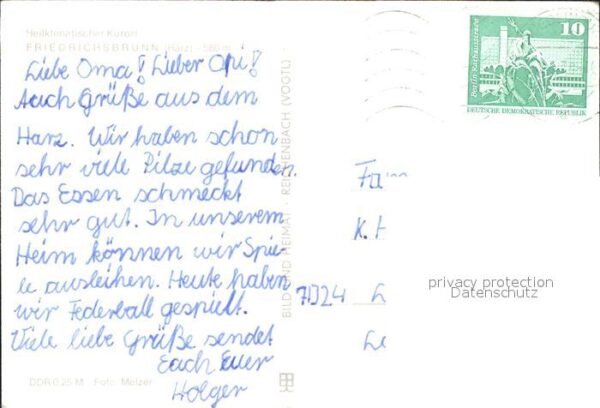 Heilklimatischer Kurort
FRIEDRICHSBRUNN (Harz) - 580 m
Liebe Oma! Lieber Opi!
Auch Grüße aus dem
Harz. Wir haben schon
sehr viele Pilze gefunden.
Das Essen schmeckt
sehr gut. In unserem
Heim können wir Spie-
le ausleihen. Heute haben
wir Federball gespielt.
Viele liebe Grüße sendet
Euch Euer
Holger
DDR 0,25 M Foto: Melzer
BILD UND HEIMAT REICHENBACH (VOGTL)
10
Berlin-Neptunbrunnen
DEUTSCHE DEMOKRATISCHE REPUBLIK
Fam
K. H
L
Le
privacy protection
Datenschutz